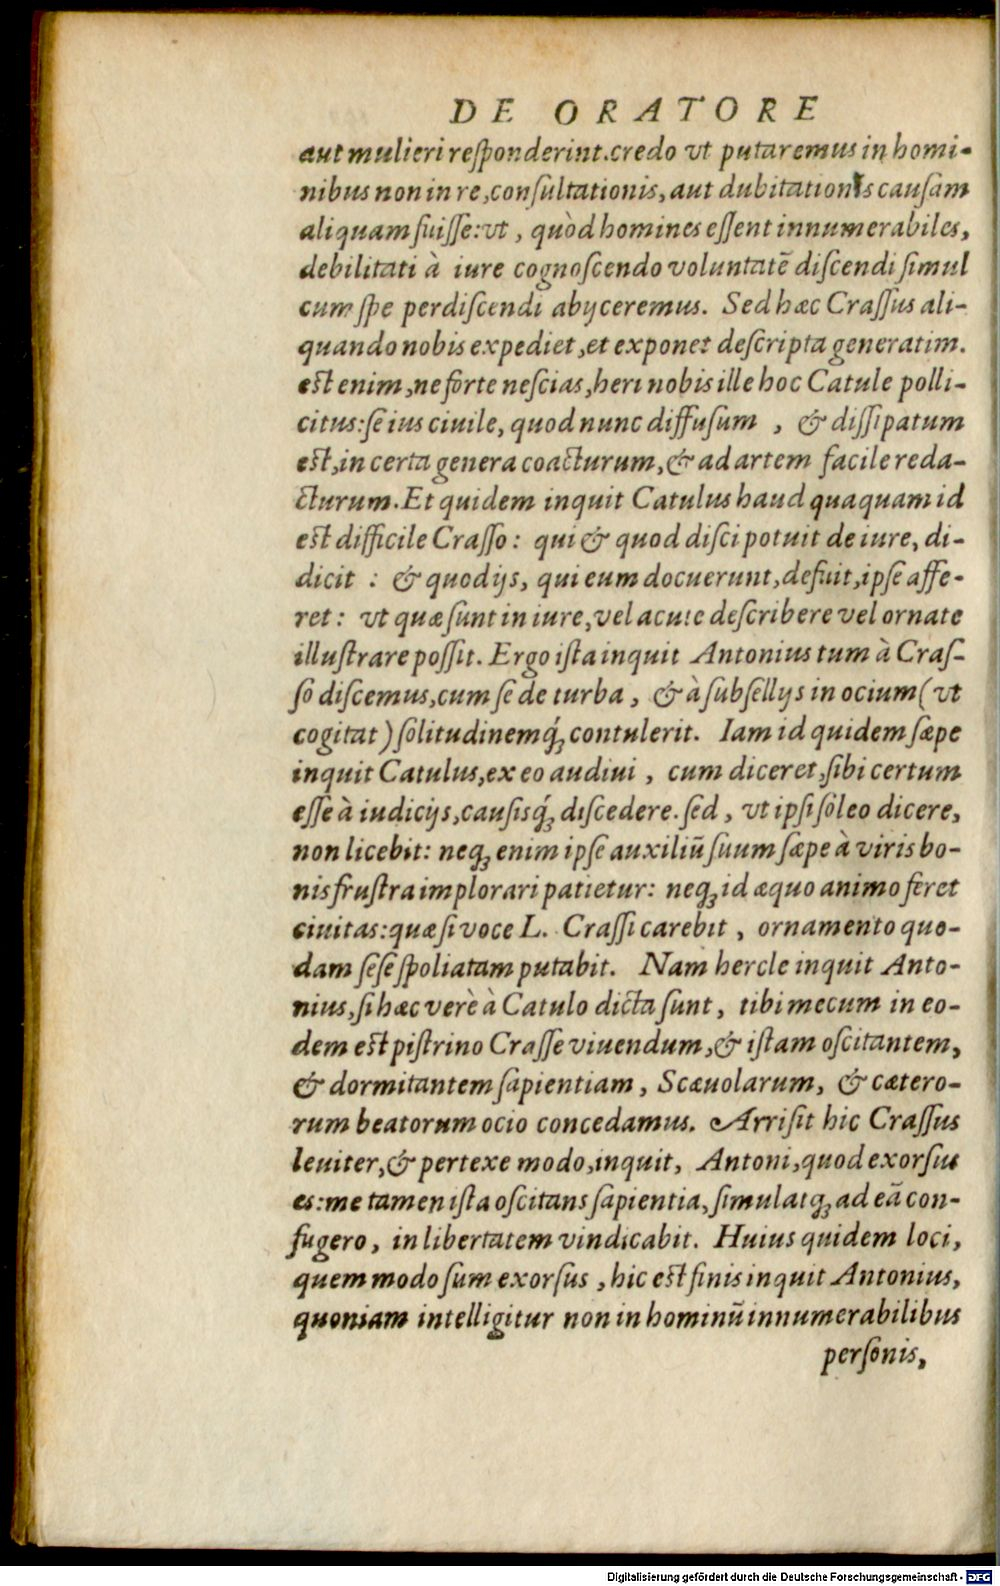 DE ORATORE
aut mulieri reſponderint. credo vt putaremus in homi-
nibus non in re, conſultationis, aut dubitationis cauſam
aliquam fuiſſe: vt, quòd homines eſſent innumerabiles,
debilitati à iure cognoſcendo voluntatē diſcendi ſimul
cum ſpe perdiſcendi abijceremus. Sed hæc Craſſus ali-
quando nobis expediet, et exponet deſcripta generatim.
eſt enim, ne forte neſcias, heri nobis ille hoc Catule polli-
citus: ſe ius ciuile, quod nunc diffuſum, & diſſipatum
eſt, in certa genera coacturum, & ad artem facile reda-
cturum. Et quidem inquit Catulus haud quaquam id
eſt difficile Craſſo: qui & quod diſci potuit de iure, di-
dicit: & quod ijs, qui eum docuerunt, defuit, ipſe affe-
ret: vt quæ ſunt in iure, vel acute deſcribere vel ornate
illuſtrare poſſit. Ergo iſta inquit Antonius tum à Craſ-
ſo diſcemus, cum ſe de turba, & à ſubſellijs in ocium (vt
cogitat) ſolitudinemq́; contulerit. Iam id quidem ſæpe
inquit Catulus, ex eo audiui, cum diceret, ſibi certum
eſſe à iudicijs, cauſisq́; diſcedere. ſed, vt ipſi ſoleo dicere,
non licebit: neq; enim ipſe auxiliū ſuum ſæpe à viris bo-
nis fruſtra implorari patietur: neq; id æquo animo feret
ciuitas: quæ ſi voce L. Craſſi carebit, ornamento quo-
dam ſeſe ſpoliatam putabit. Nam hercle inquit Anto-
nius, ſi hæc verè à Catulo dicta ſunt, tibi mecum in eo-
dem eſt piſtrino Craſſe viuendum, & iſtam oſcitantem,
& dormitantem ſapientiam, Scæuolarum, & cætero-
rum beatorum ocio concedamus. Arriſit hic Craſſus
leuiter, & pertexe modo, inquit, Antoni, quod exorſus
es: me tamen iſta oſcitans ſapientia, ſimulatq; ad eā con-
fugero, in libertatem vindicabit. Huius quidem loci,
quem modo ſum exorſus, hic eſt finis inquit Antonius,
quoniam intelligitur non in hominū innumerabilibus
perſonis,
Digitalisierung gefördert durch die Deutsche Forschungsgemeinschaft - DFG